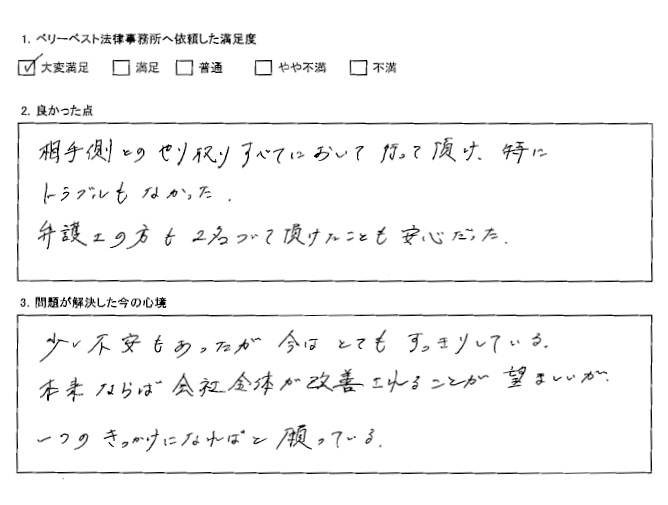 1. ベリーベスト法律事務所へ依頼した満足度
☑ 大変満足 □ 満足 □ 普通 □ やや不満 □ 不満
2. 良かった点
相手側とのやり取りすべてにおいて行って頂け、特に
トラブルもなかった.
弁護士の方も2名づいて頂けたことも安心だった.
3. 問題が解決した今の心境
少し不安もあったが今はとてもすっきりしている.
本来ならば会社全体が改善されることが望ましいが.
一つのきっかけになればと願っている.